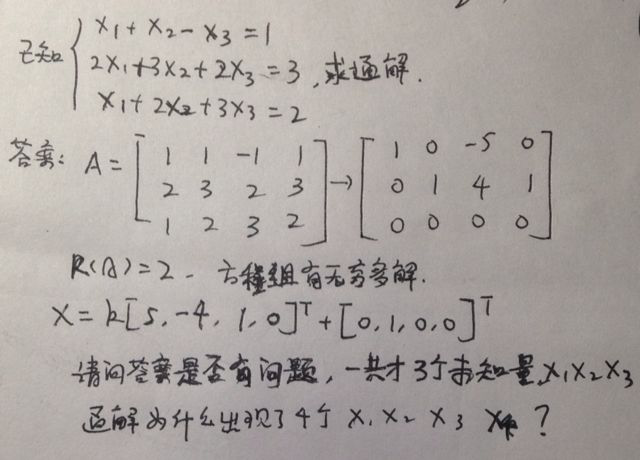 已知 { x₁ + x₂ - x₃ = 1
2x₁ + 3x₂ + 2x₃ = 3 , 求通解.
x₁ + 2x₂ + 3x₃ = 2
答案: A = [ 1 1 -1 1 ] → [ 1 0 -5 0 ]
[ 2 3 2 3 ] [ 0 1 4 1 ]
[ 1 2 3 2 ] [ 0 0 0 0 ]
R(A)=2. 方程组有无穷多解.
X = k[5, -4, 1, 0]ᵀ + [0, 1, 0, 0]ᵀ
请问答案是否有问题, 一共才3个未知量 x₁x₂x₃
通解为什么出现了4个 x₁ x₂ x₃ x₄ ?